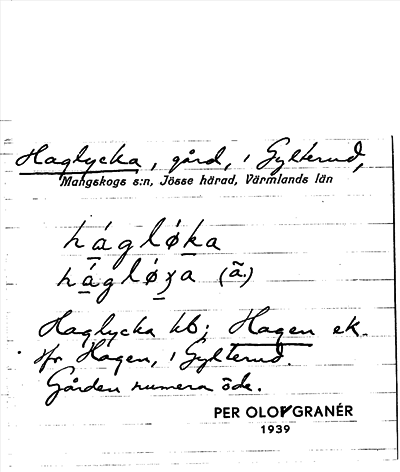 Haglycka, gård, i Gylterud,
Mangskogs s:n, Jösse härad, Värmlands län
hágløka
hágløʒa (ä.)
Haglycka kb; Hagen ek.
jfr Hagen, i Gylterud.
Gården numera öde.
PER OLOF GRANÉR
1939